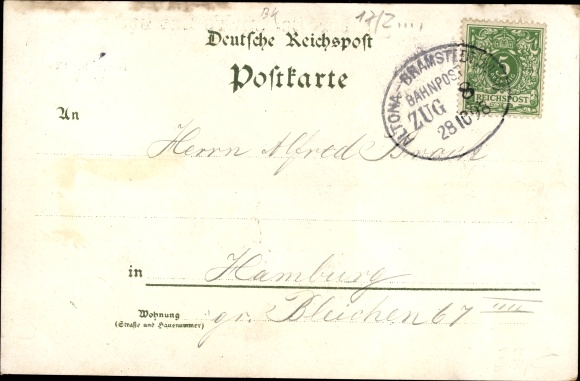 Deutsche Reichspost
Postkarte
ALTONA - BRAMSTEDT
BAHNPOST
ZUG 8
28 10 98
5
REICHSPOST
An
Herrn Alfred
in Hamburg
Wohnung gr. Bleichen 67 IIII
(Straße und Hausnummer)